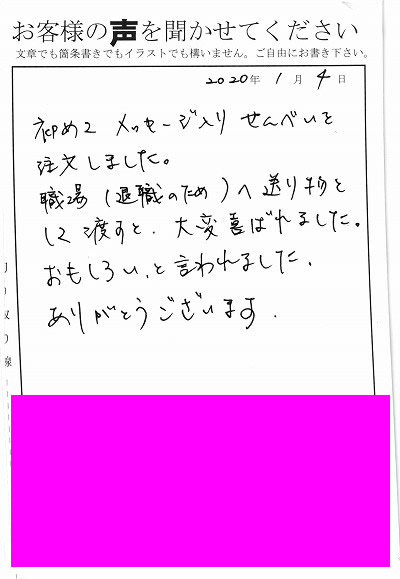 お客様の声を聞かせてください
文章でも箇条書きでもイラストでも構いません。ご自由にお書き下さい。
2020年 1月 4日
初めて メッセージ入り せんべいを
注文しました。
職場(退職のため)へ送り物と
して渡すと、大変喜ばれました。
おもしろい、と言われました。
ありがとうございます.
切り取り線